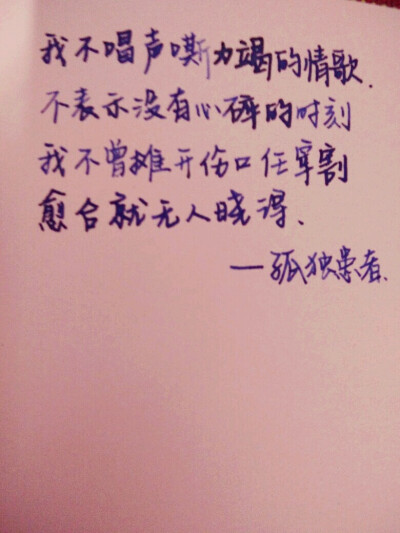 我不唱声嘶力竭的情歌.
不表示没有心碎的时刻
我不曾摊开伤口任宰割
愈合就无人晓得.
—孤独患者.